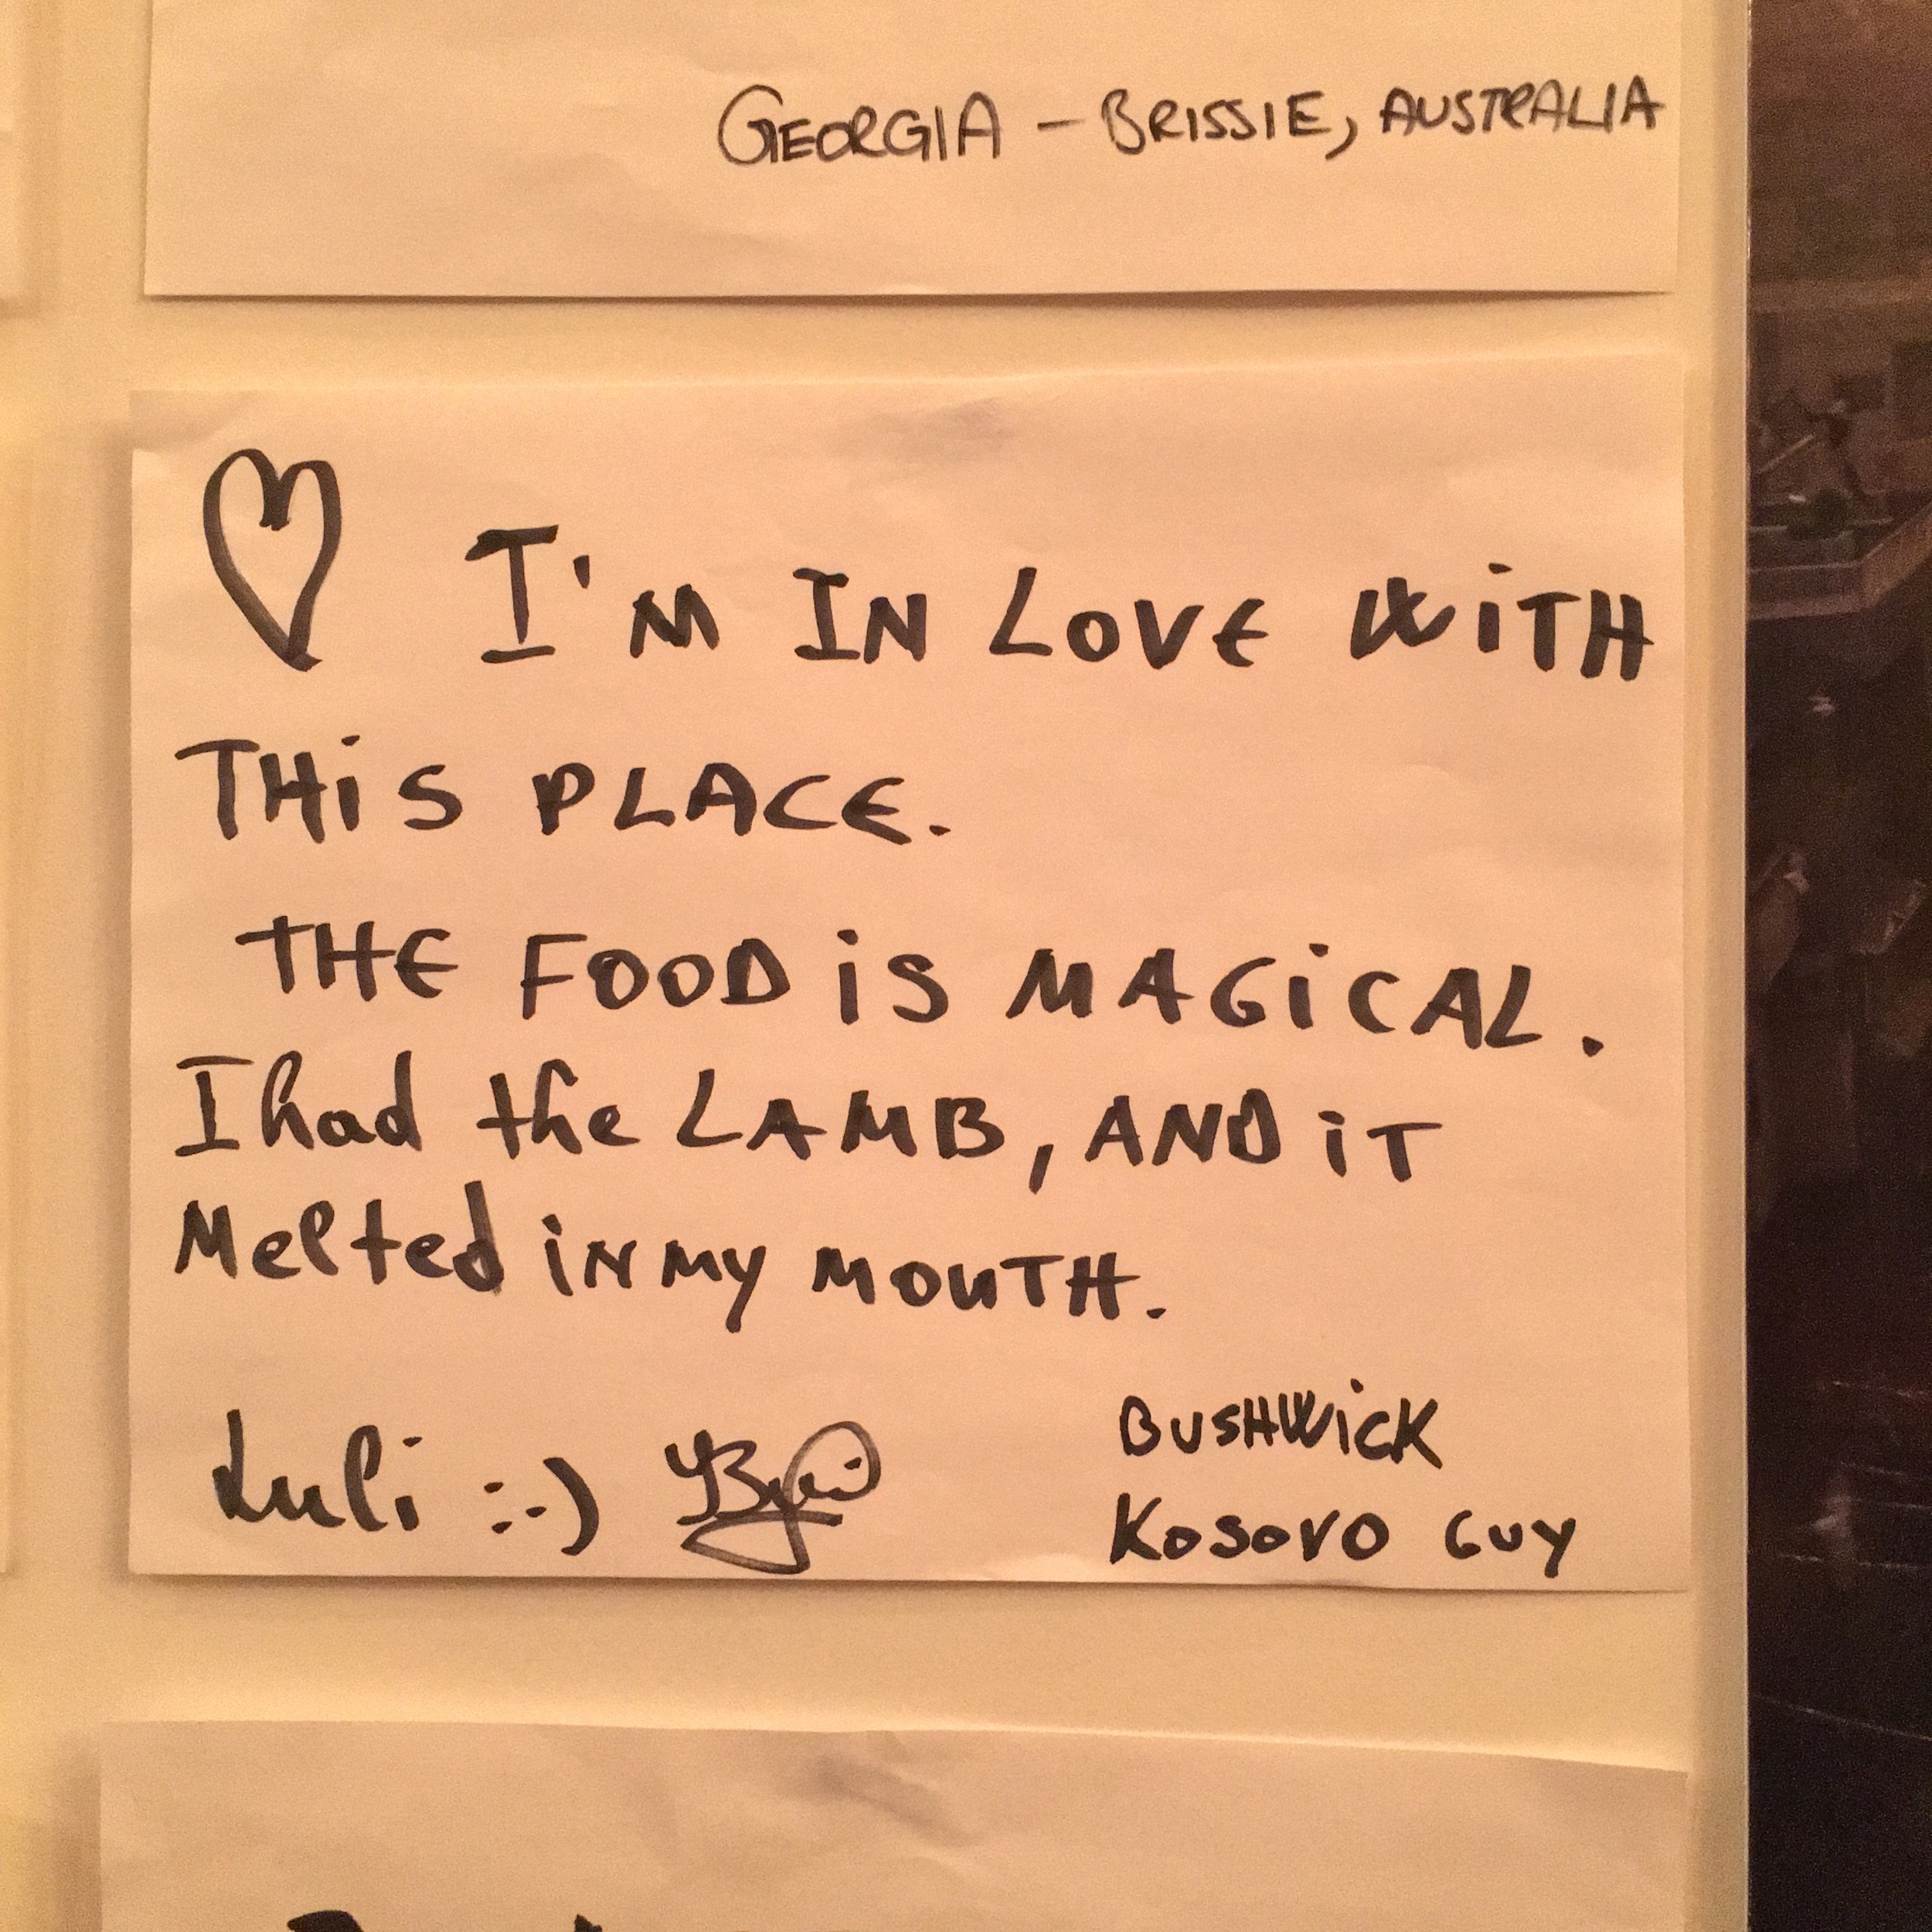 GEORGIA – BRISSIE, AUSTRALIA
I'M IN LOVE WiTH
THiS PLACE.
THE FOOD iS MAGiCAL.
I had the LAMB, AND iT
Melted iN MY MOUTH.
Luli :-)
BUSHWiCK
KOSOVO GUY